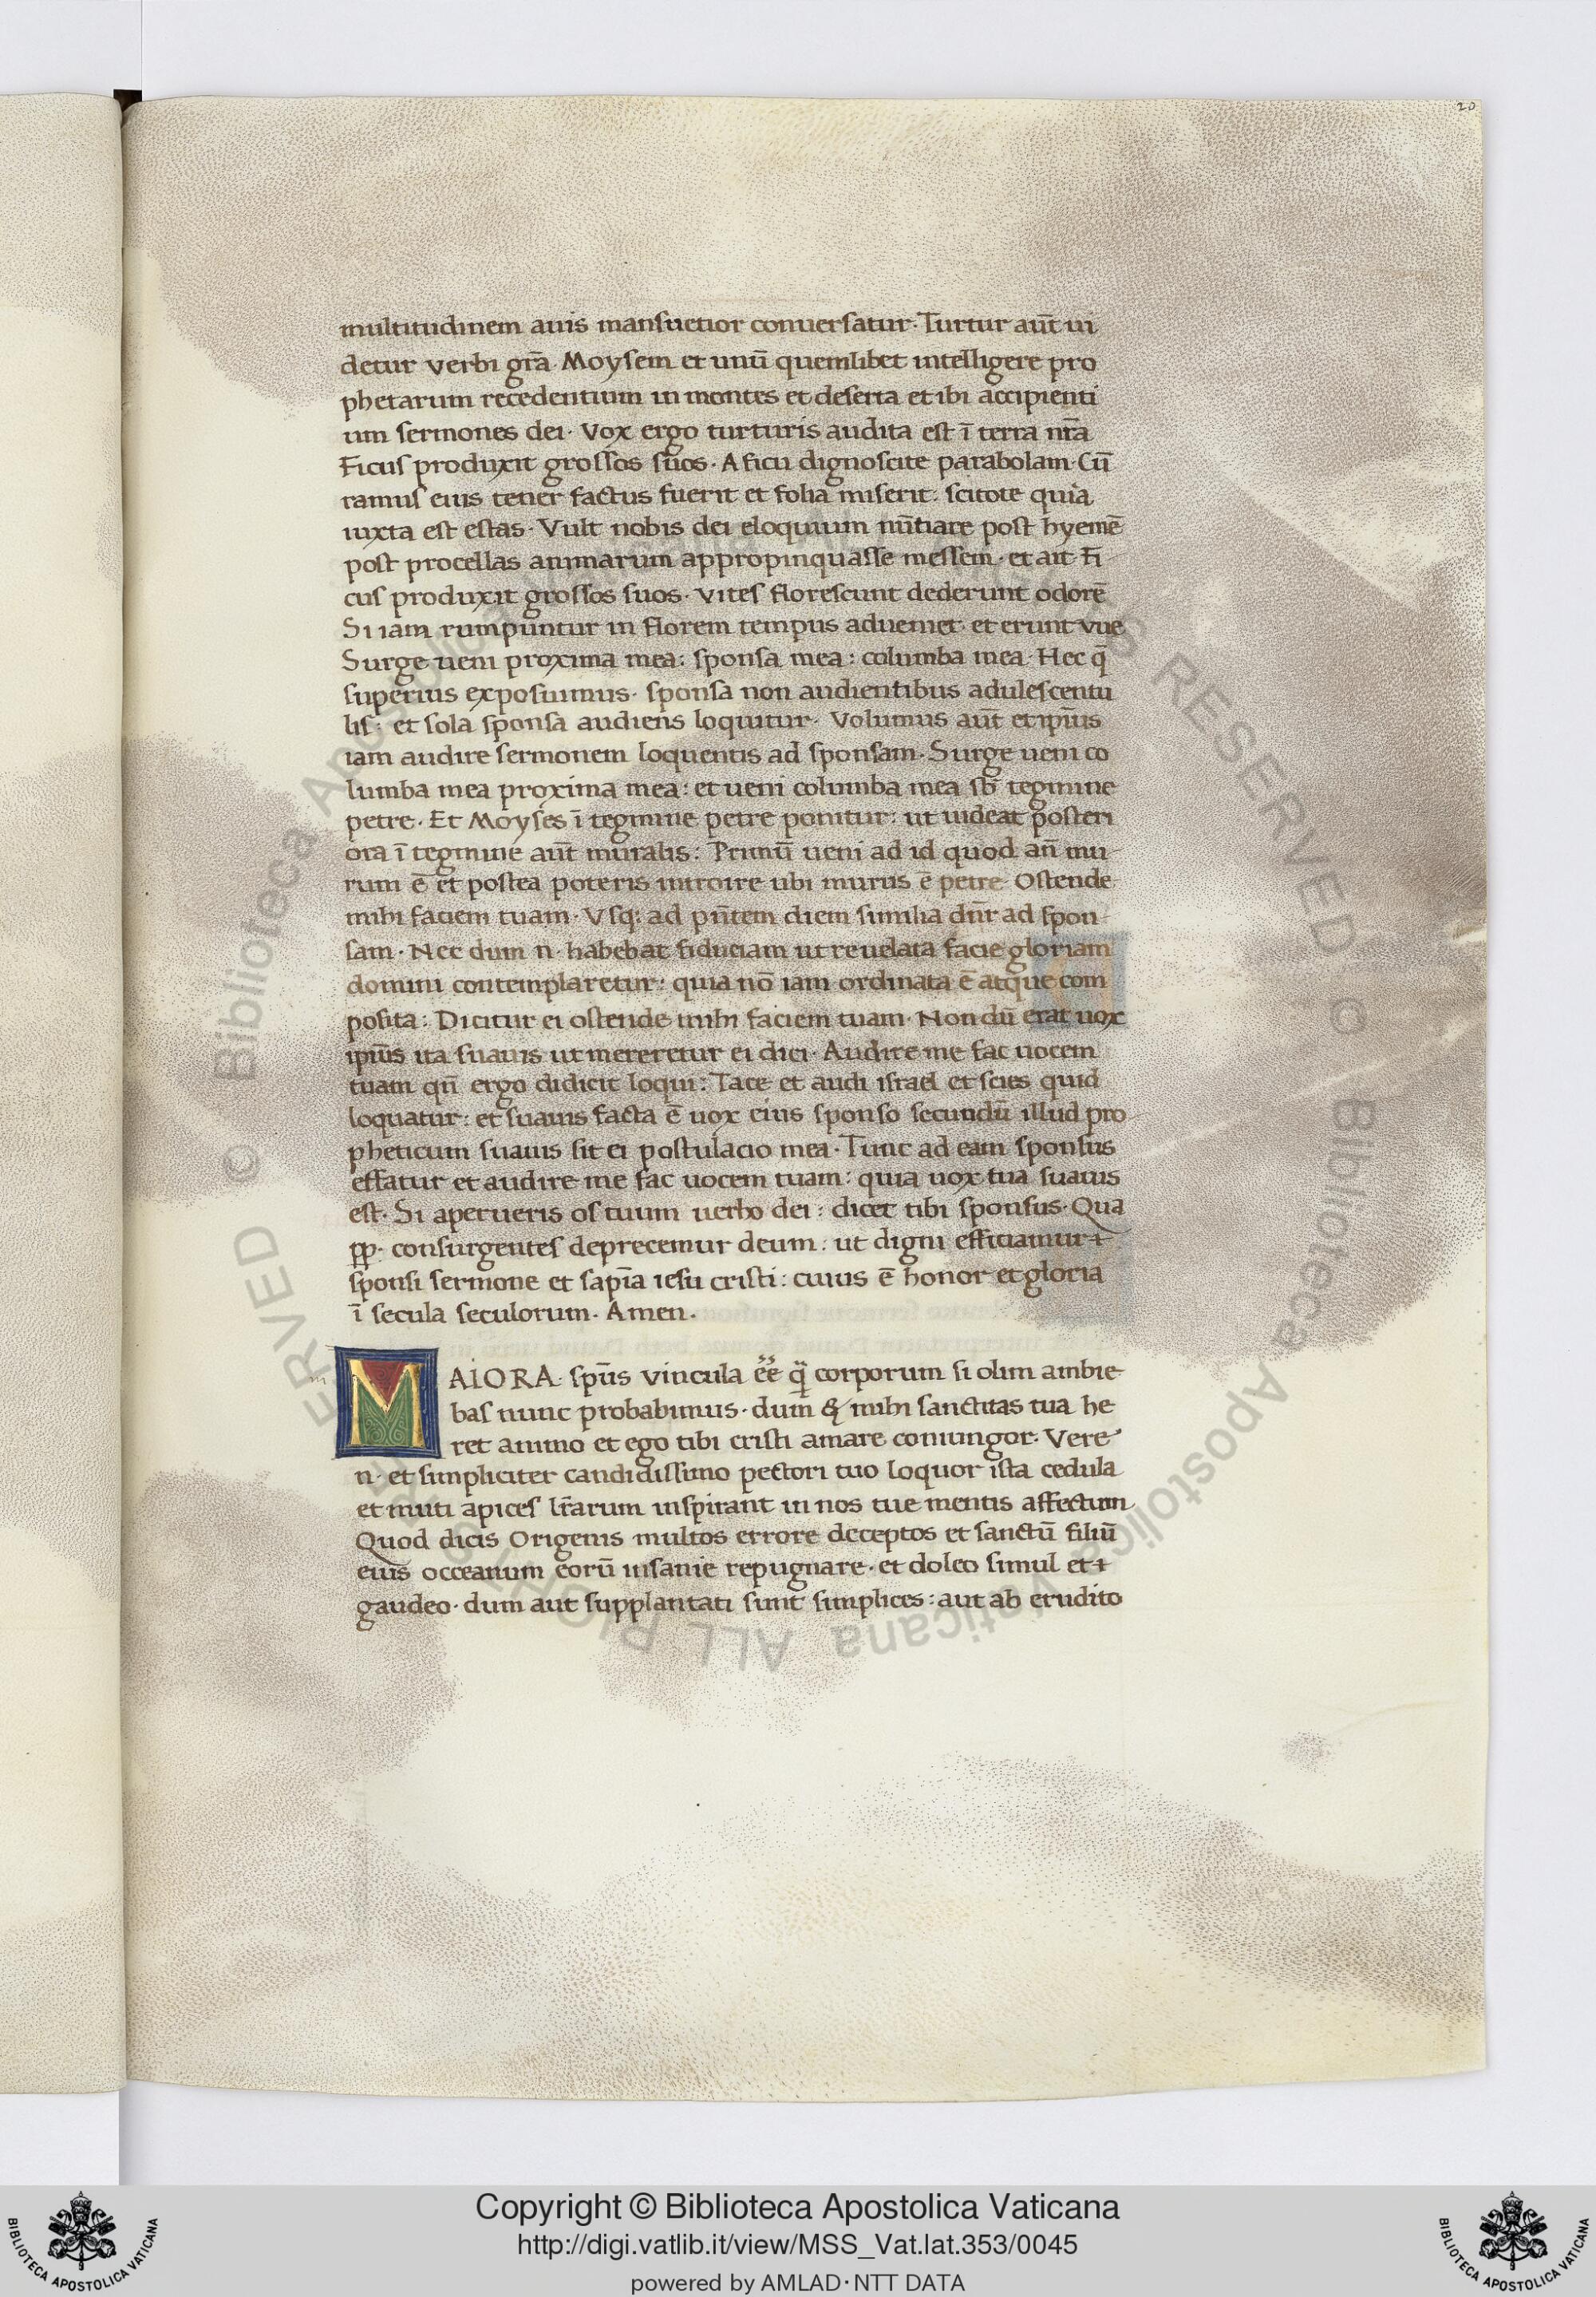 20
multitudinem auis mansuetior conuersatur· Turtur aūt ui
detur verbi gr̄a· Moysem et unū quemlibet intelligere pro
phetarum recedentium in montes et deserta et ibi accipienti
um sermones dei· Vox ergo turturis audita est ī terra nr̄a
Ficus produxit grossos suos· A ficu dignoscite parabolam· Cū
ramus eius tener factus fuerit et folia miserit: scitote quia
iuxta est estas· Vult nobis dei eloquium nūtiare post hyemē
post procellas animarum appropinquasse messem· et ait· Fi
cus produxit grossos suos· vites florescunt dederunt odorē
Si iam rumpuntur in florem tempus adueniet· et erunt vue
Surge ueni proxima mea: sponsa mea: columba mea· Hec q̄
superius exposuimus· sponsa non audientibus adulescentu
lis: et sola sponsa audiens loquitur· Volumus aūt et ipīus
iam audire sermonem loquentis ad sponsam· Surge ueni co
lumba mea proxima mea: et ueni columba mea sb̄ tegmine
petre· Et Moyses ī tegmine petre ponitur: ut uideat posteri
ora ī tegmine aūt muralis: Primū ueni ad id quod an̄ mu
rum ē et postea poteris introire ubi murus ē petre· Ostende
mihi faciem tuam· Vsq: ad pn̄tem diem similia dn̄r ad spon
sam· Nec dum n· habebat fiduciam ut reuelata facie gloriam
domini contemplaretur: quia nō iam ordinata ē atque com
posita: Dicitur ei ostende mihi faciem tuam· Non dū erat uox
ipīus ita suauis ut mereretur ei dici· Audire me fac uocem
tuam qn̄ ergo didicit loqui: Tace et audi israel et scies quid
loquatur: et suauis facta ē uox eius sponso secundū illud pro
pheticum suauis sit ei postulacio mea· Tunc ad eam sponsus
effatur et audire me fac uocem tuam: quia uox tua suauis
est· Si aperueris os tuum uerbo dei: dicet tibi sponsus· Qua
pp· consurgentes deprecemur deum: ut digni efficiamur
sponsi sermone et sapīa iesu cristi: cuius ē honor et gloria
ī secula seculorum· Amen·
MAIORA sp̄us vincula ēe q̄ corporum si olim ambie
bas nunc probabimus· dum & mihi sanctitas tua he
ret animo et ego tibi cristi amare coniungor· Vere
n· et simpliciter candidissimo pectori tuo loquor ista cedula
et muti apices lr̄arum inspirant in nos tue mentis affectum
Quod dicis Origenis multos errore deceptos et sanctū filiū
eius occeanum eorū insanie repugnare· et doleo simul et
gaudeo· dum aut supplantati sunt simplices: aut ab erudito
Copyright © Biblioteca Apostolica Vaticana
http://digi.vatlib.it/view/MSS_Vat.lat.353/0045
powered by AMLAD·NTT DATA
BIBLIOTECA APOSTOLICA VATICANA
BIBLIOTECA APOSTOLICA VATICANA